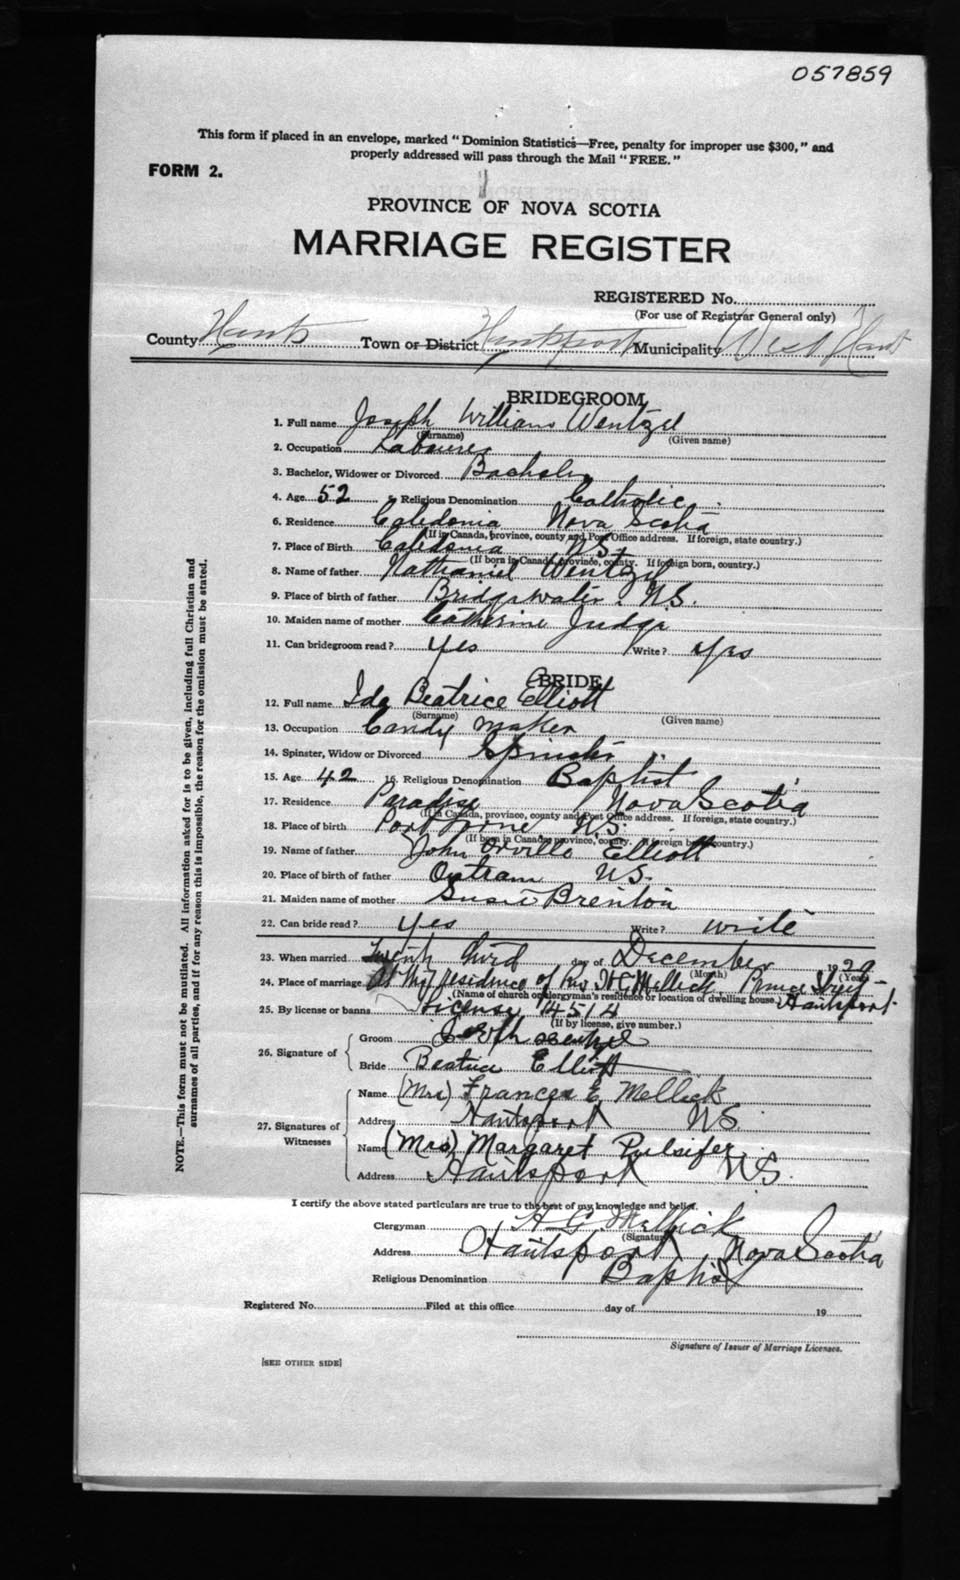 057859
This form if placed in an envelope, marked "Dominion Statistics—Free, penalty for improper use $300," and
properly addressed will pass through the Mail "FREE."
FORM 2.
PROVINCE OF NOVA SCOTIA
MARRIAGE REGISTER
REGISTERED No.
(For use of Registrar General only)
County Hants Town or District Hantsport Municipality West Hants
BRIDEGROOM
1. Full name Joseph William Wentzel
(Surname) (Given name)
2. Occupation Labourer
3. Bachelor, Widower or Divorced Bachelor
4. Age 52 5. Religious Denomination Catholic
6. Residence Caledonia Nova Scotia
(If in Canada, province, county and Post Office address. If foreign, state country.)
7. Place of Birth Caledonia N.S.
(If born in Canada, province, county. If foreign born, country.)
8. Name of father Nathaniel Wentzel
9. Place of birth of father Bridgewater N.S.
10. Maiden name of mother Catherine Judge
11. Can bridegroom read? Yes Write? Yes
BRIDE
12. Full name Ida Beatrice Elliott
(Surname) (Given name)
13. Occupation Candy maker
14. Spinster, Widow or Divorced Spinster
15. Age 42 16. Religious Denomination Baptist
17. Residence Paradise Nova Scotia
(If in Canada, province, county and Post Office address. If foreign, state country.)
18. Place of birth Port Lorne N.S.
(If born in Canada, province, county. If foreign born, country.)
19. Name of father John Orville Elliott
20. Place of birth of father Outram N.S.
21. Maiden name of mother Susie Brenton
22. Can bride read? Yes Write? write
23. When married Twenty third day of December 1929
(Month) (Year)
24. Place of marriage At the residence of Rev. H G Mellick Prince Street
(Name of church or clergyman's residence or location of dwelling house.) Hantsport
25. By license or banns License 14514
(If by license, give number.)
26. Signature of
Groom Joseph Wentzel
Bride Beatrice Elliott
27. Signatures of Witnesses
Name (Mrs) Frances E. Mellick
Address Hantsport N.S.
Name (Mrs) Margaret Pulsifer
Address Hantsport N.S.
I certify the above stated particulars are true to the best of my knowledge and belief.
Clergyman H. G. Mellick
(Signature)
Address Hantsport Nova Scotia
Religious Denomination Baptist
Registered No. Filed at this office day of 19
Signature of Issuer of Marriage Licenses.
[SEE OTHER SIDE]
NOTE.—This form must not be mutilated. All information asked for is to be given, including full Christian and
surnames of all parties, and if for any reason this is impossible, the reason for the omission must be stated.